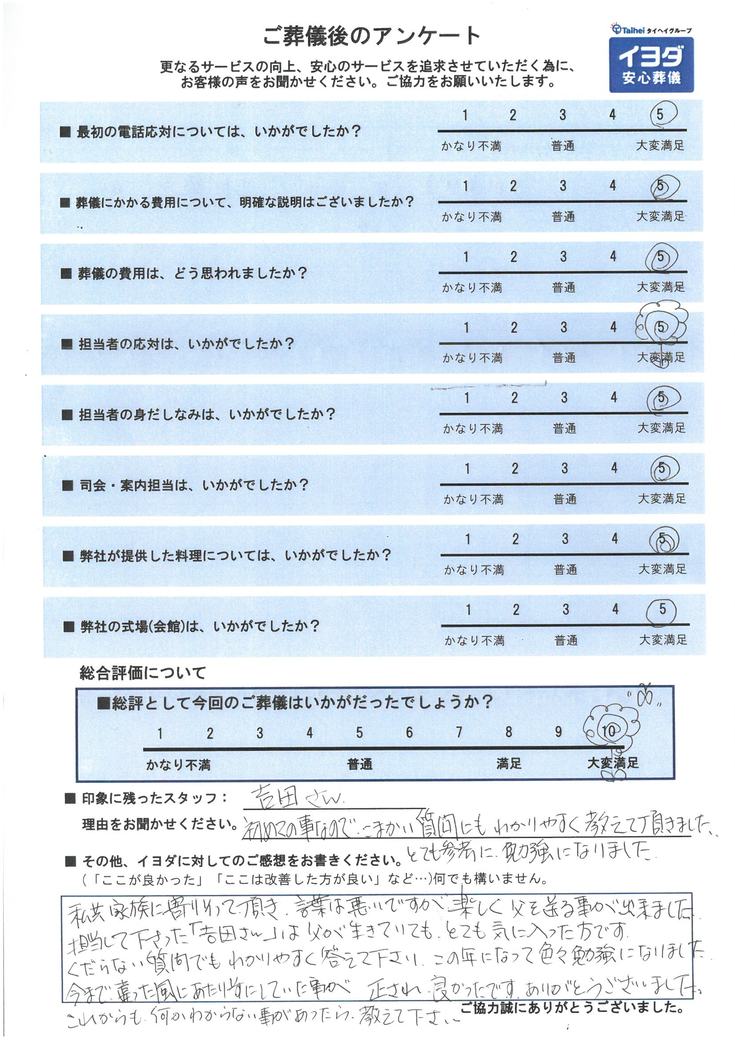 ご葬儀後のアンケート
Taihei タイヘイグループ
イヨダ
安心葬儀
更なるサービスの向上、安心のサービスを追求させていただく為に、
お客様の声をお聞かせください。ご協力をお願いいたします。
■ 最初の電話応対については、いかがでしたか？
1 2 3 4 5
かなり不満 普通 大変満足
■ 葬儀にかかる費用について、明確な説明はございましたか？
1 2 3 4 5
かなり不満 普通 大変満足
■ 葬儀の費用は、どう思われましたか？
1 2 3 4 5
かなり不満 普通 大変満足
■ 担当者の応対は、いかがでしたか？
1 2 3 4 5
かなり不満 普通 大変満足
■ 担当者の身だしなみは、いかがでしたか？
1 2 3 4 5
かなり不満 普通 大変満足
■ 司会・案内担当は、いかがでしたか？
1 2 3 4 5
かなり不満 普通 大変満足
■ 弊社が提供した料理については、いかがでしたか？
1 2 3 4 5
かなり不満 普通 大変満足
■ 弊社の式場(会館)は、いかがでしたか？
1 2 3 4 5
かなり不満 普通 大変満足
総合評価について
■総評として今回のご葬儀はいかがだったでしょうか？
1 2 3 4 5 6 7 8 9 10
かなり不満 普通 満足 大変満足
■ 印象に残ったスタッフ： 吉田さん
理由をお聞かせください。初めての事なので、こまかい質問にもわかりやすく教えて頂きました、
とても参考に、勉強になりました
■ その他、イヨダに対してのご感想をお書きください。
（「ここが良かった」「ここは改善した方が良い」など…)何でも構いません。
私共家族に寄りそって頂き、言葉は悪いですが、楽しく父を送る事が出来ました
担当して下さった「吉田さん」は父が生きていても、とても気に入った方です
くだらない質問でもわかりやすく答えて下さい、この年になって色々勉強になりました
今まで違った風にあたり前にしていた事が 正され、良かったです、ありがとうございました。
これからも、何かわからない事があったら、教えて下さい、
ご協力誠にありがとうございました。